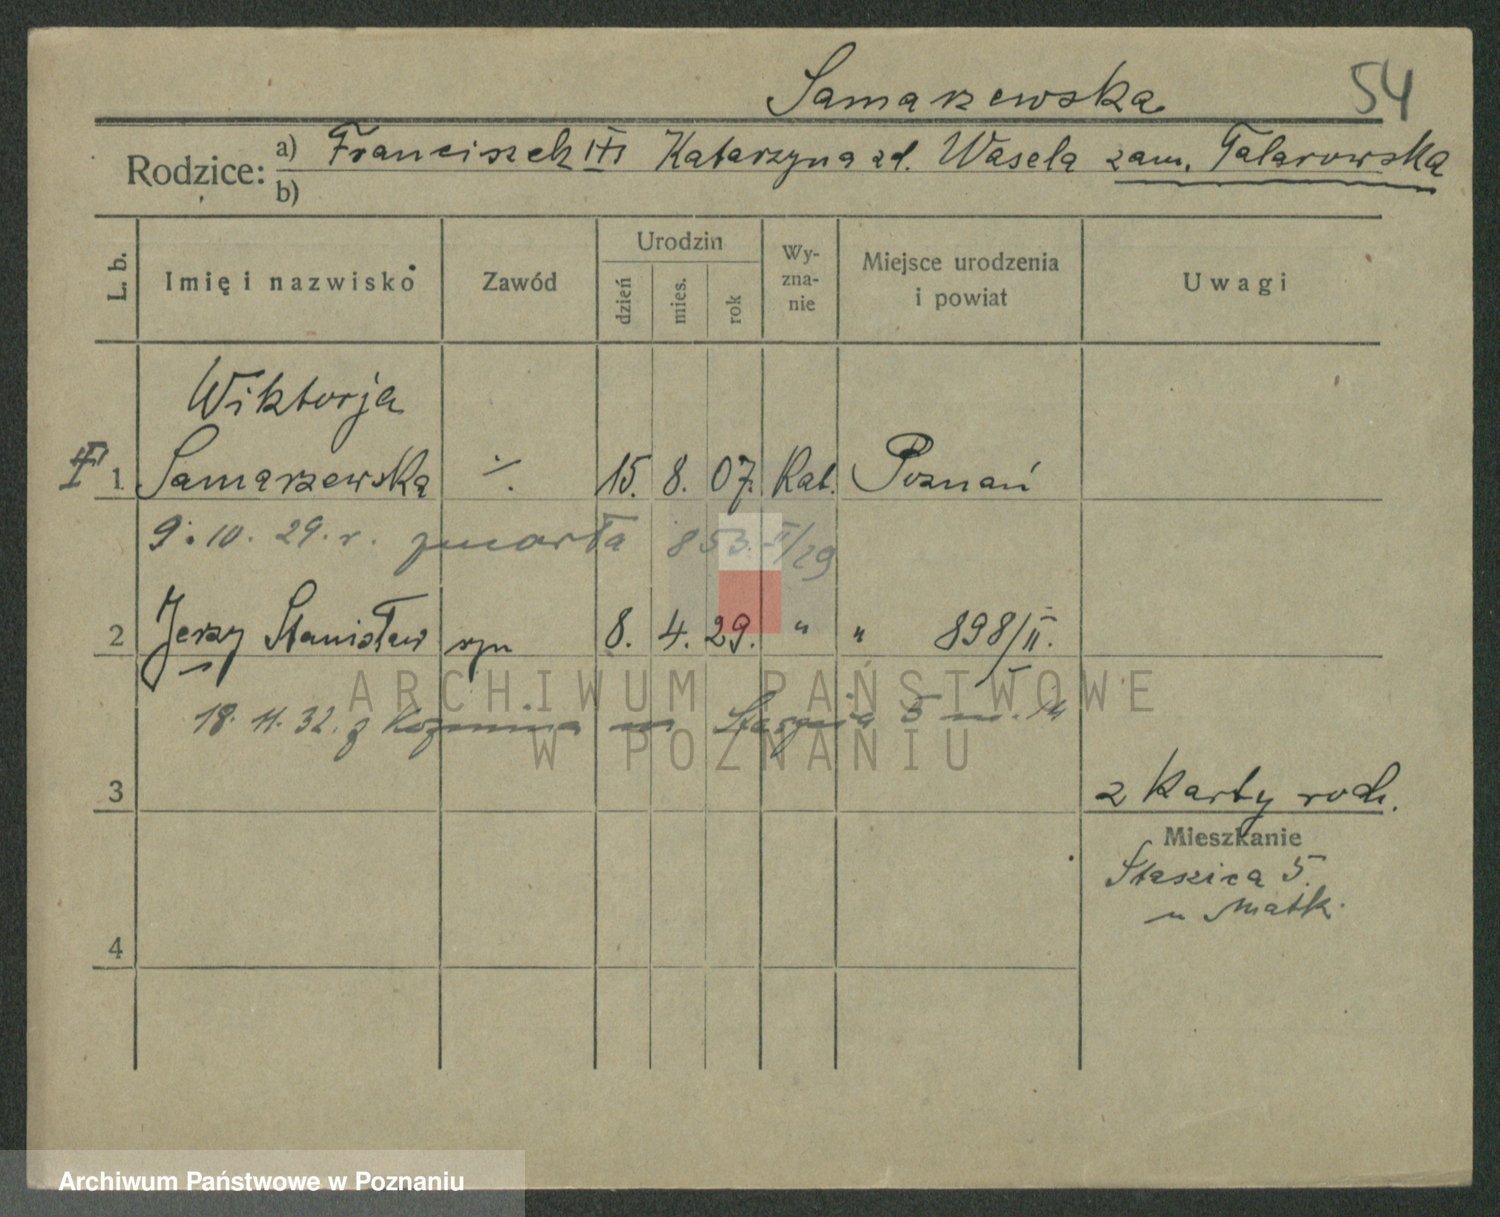 Samarzewska 54
Rodzice: a) Franciszek Katarzyna zd. Wasela zam. Talarowska
b)
L. b. Imię i nazwisko Zawód Urodzin dzień mies. rok Wy-zna-nie Miejsce urodzenia i powiat Uwagi
Wiktorja
1 Samarzewska ·/. 15. 8. 07. Kat. Poznań
9. 10. 29. r. zmarła 853. II/29
2 Jerzy Stanisław syn 8. 4. 29. " " 898/II.
18. 11. 32. z Koźmina Staszica 5
ARCHIWUM PAŃSTWOWE
W POZNANIU
3 z karty rodz.
Mieszkanie
Staszica 5.
u Matk.
4
Archiwum Państwowe w Poznaniu